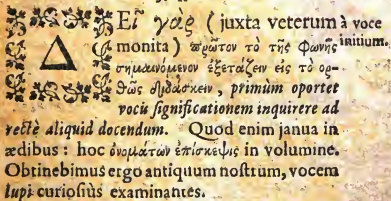 ΔΕῖ γὰρ (juxta veterum à voce
monita) πρῶτον τὸ τῆς φωνῆς initium.
σημαινόμενον ἐξετάζειν εἰς τὸ ὀρ-
θῶς διδάσκειν, primum oportet
vocis significationem inquirere ad
rectè aliquid docendum. Quod enim janua in
ædibus: hoc ὀνομάτων ἐπίσκεψις in volumine.
Obtinebimus ergo antiquum nostrum, vocem
lupi curiosiùs examinantes.